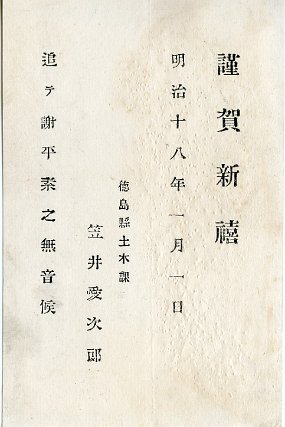 謹賀新禧
明治十八年一月一日
徳島縣土木課
笠井愛次郎
追テ謝平素之無音候